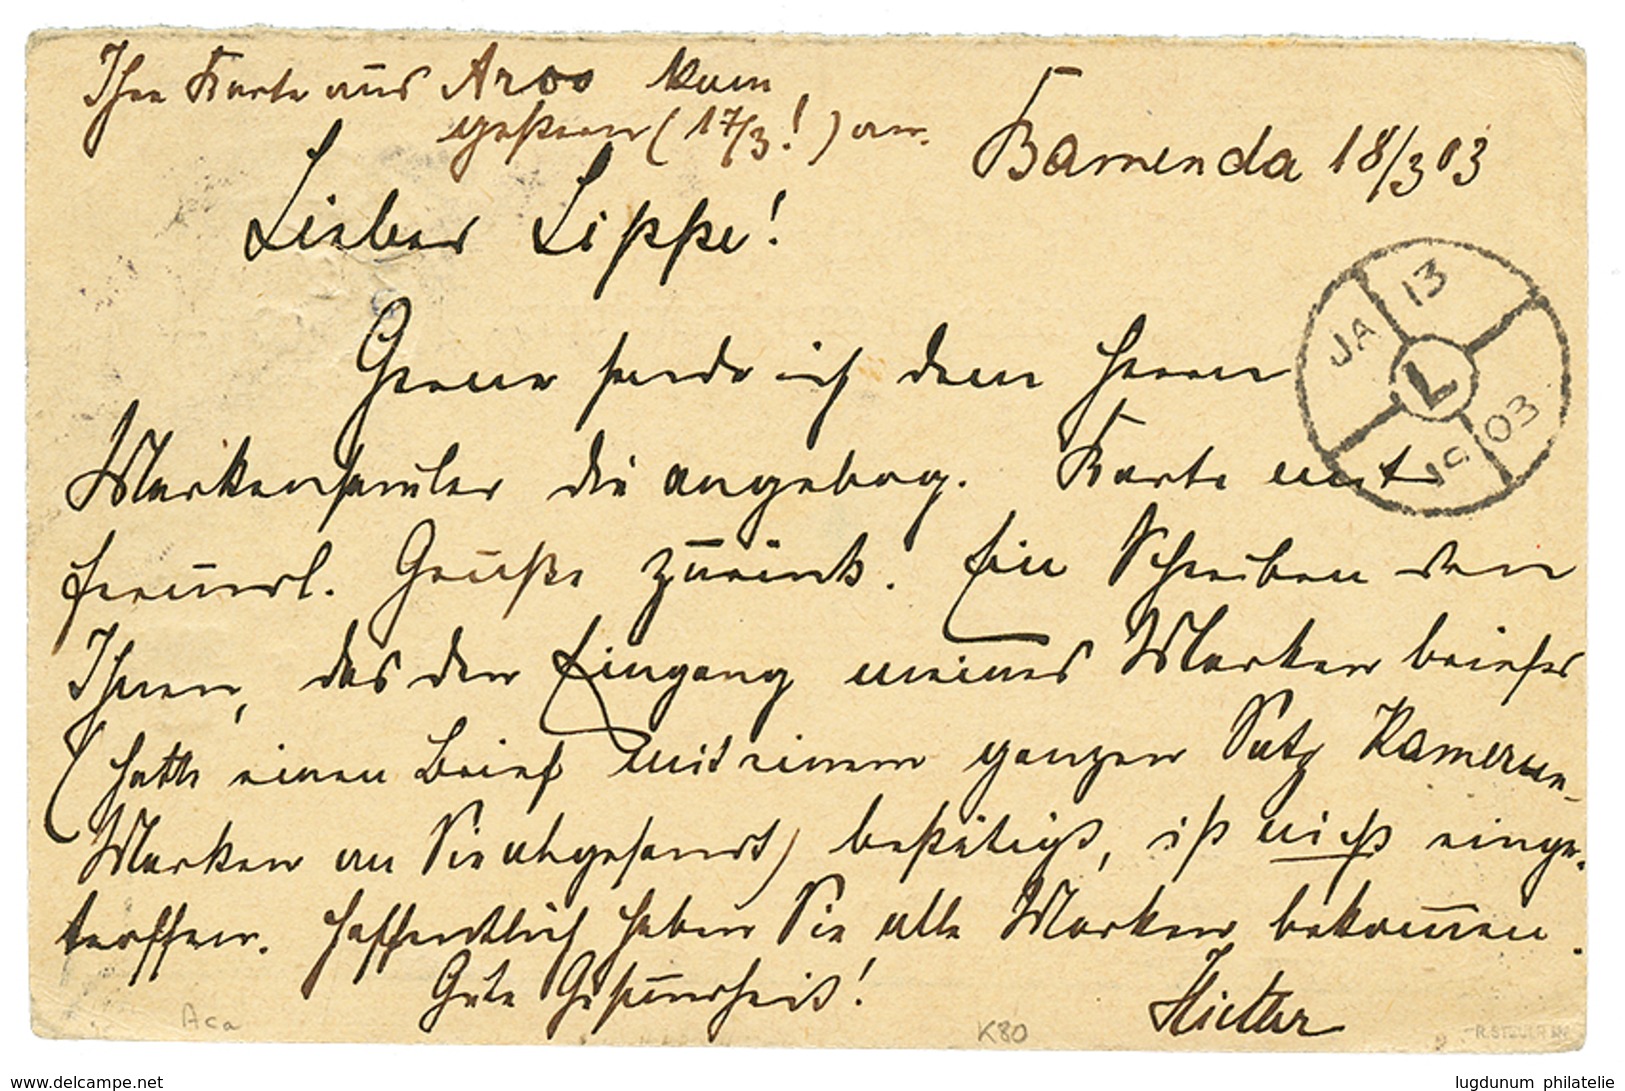 Ihre Karte aus Aroo kam
gestern (17/3!) an.
Bamenda 18/3 03
Lieber Lippe!
Gerne sende ich dem Herrn
Markensamler die angebog. Karte mit
freundl. Grüße zurück. Ein Schreiben von
Ihnen, das den Eingang meines Markenbriefes
(hatte einen Brief mit einem ganzen Satz Kamerun-
Marken an Sie abgesandt) bestätigt, ist nicht einge-
troffen. Hoffentlich haben Sie alle Marken bekom̅en.
Gute Gesundheit!
JA 13
L
19 03
Aca
K80
www.delcampe.net
lugdunum philatelie